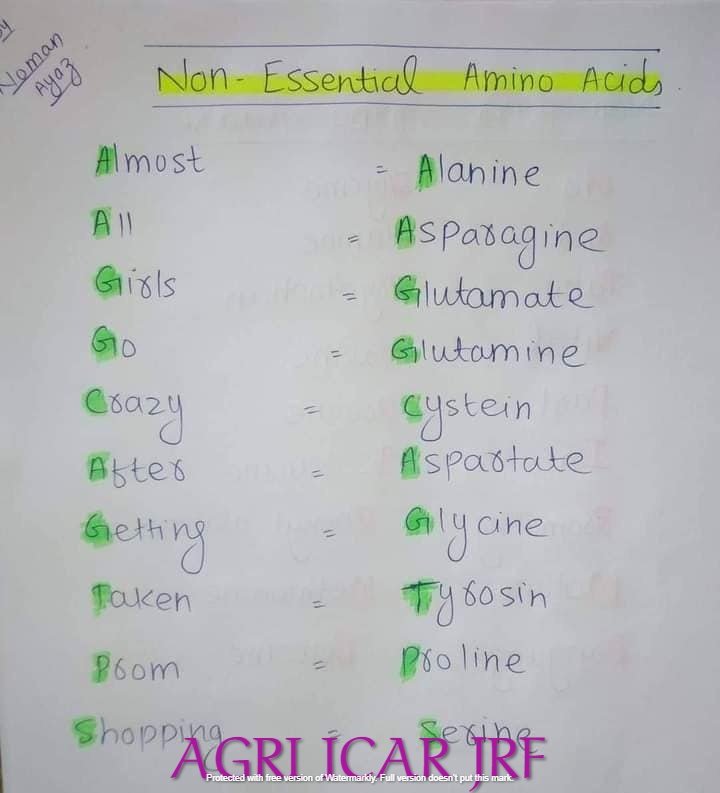 by
Noman
Ayaz
Non-Essential Amino Acids.
Almost = Alanine
All = Asparagine
Girls = Glutamate
Go = Glutamine
Crazy = Cystein
After = Aspartate
Getting = Glycine
Taken = Tyrosin
Prom = Proline
Shopping = Serine
AGRI ICAR JRF
Protected with free version of Watermarkly. Full version doesn't put this mark.